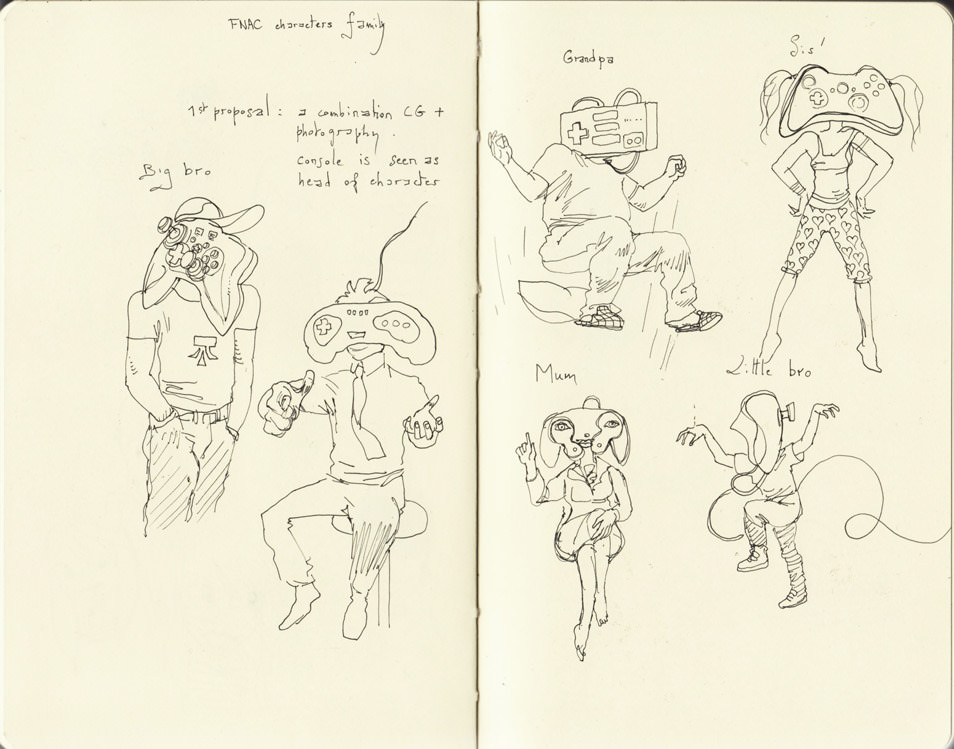 FNAC characters family
1st proposal : a combination CG +
photography .
console is seen as
head of character
Big bro
Grandpa
Sis'
Mum
Little bro